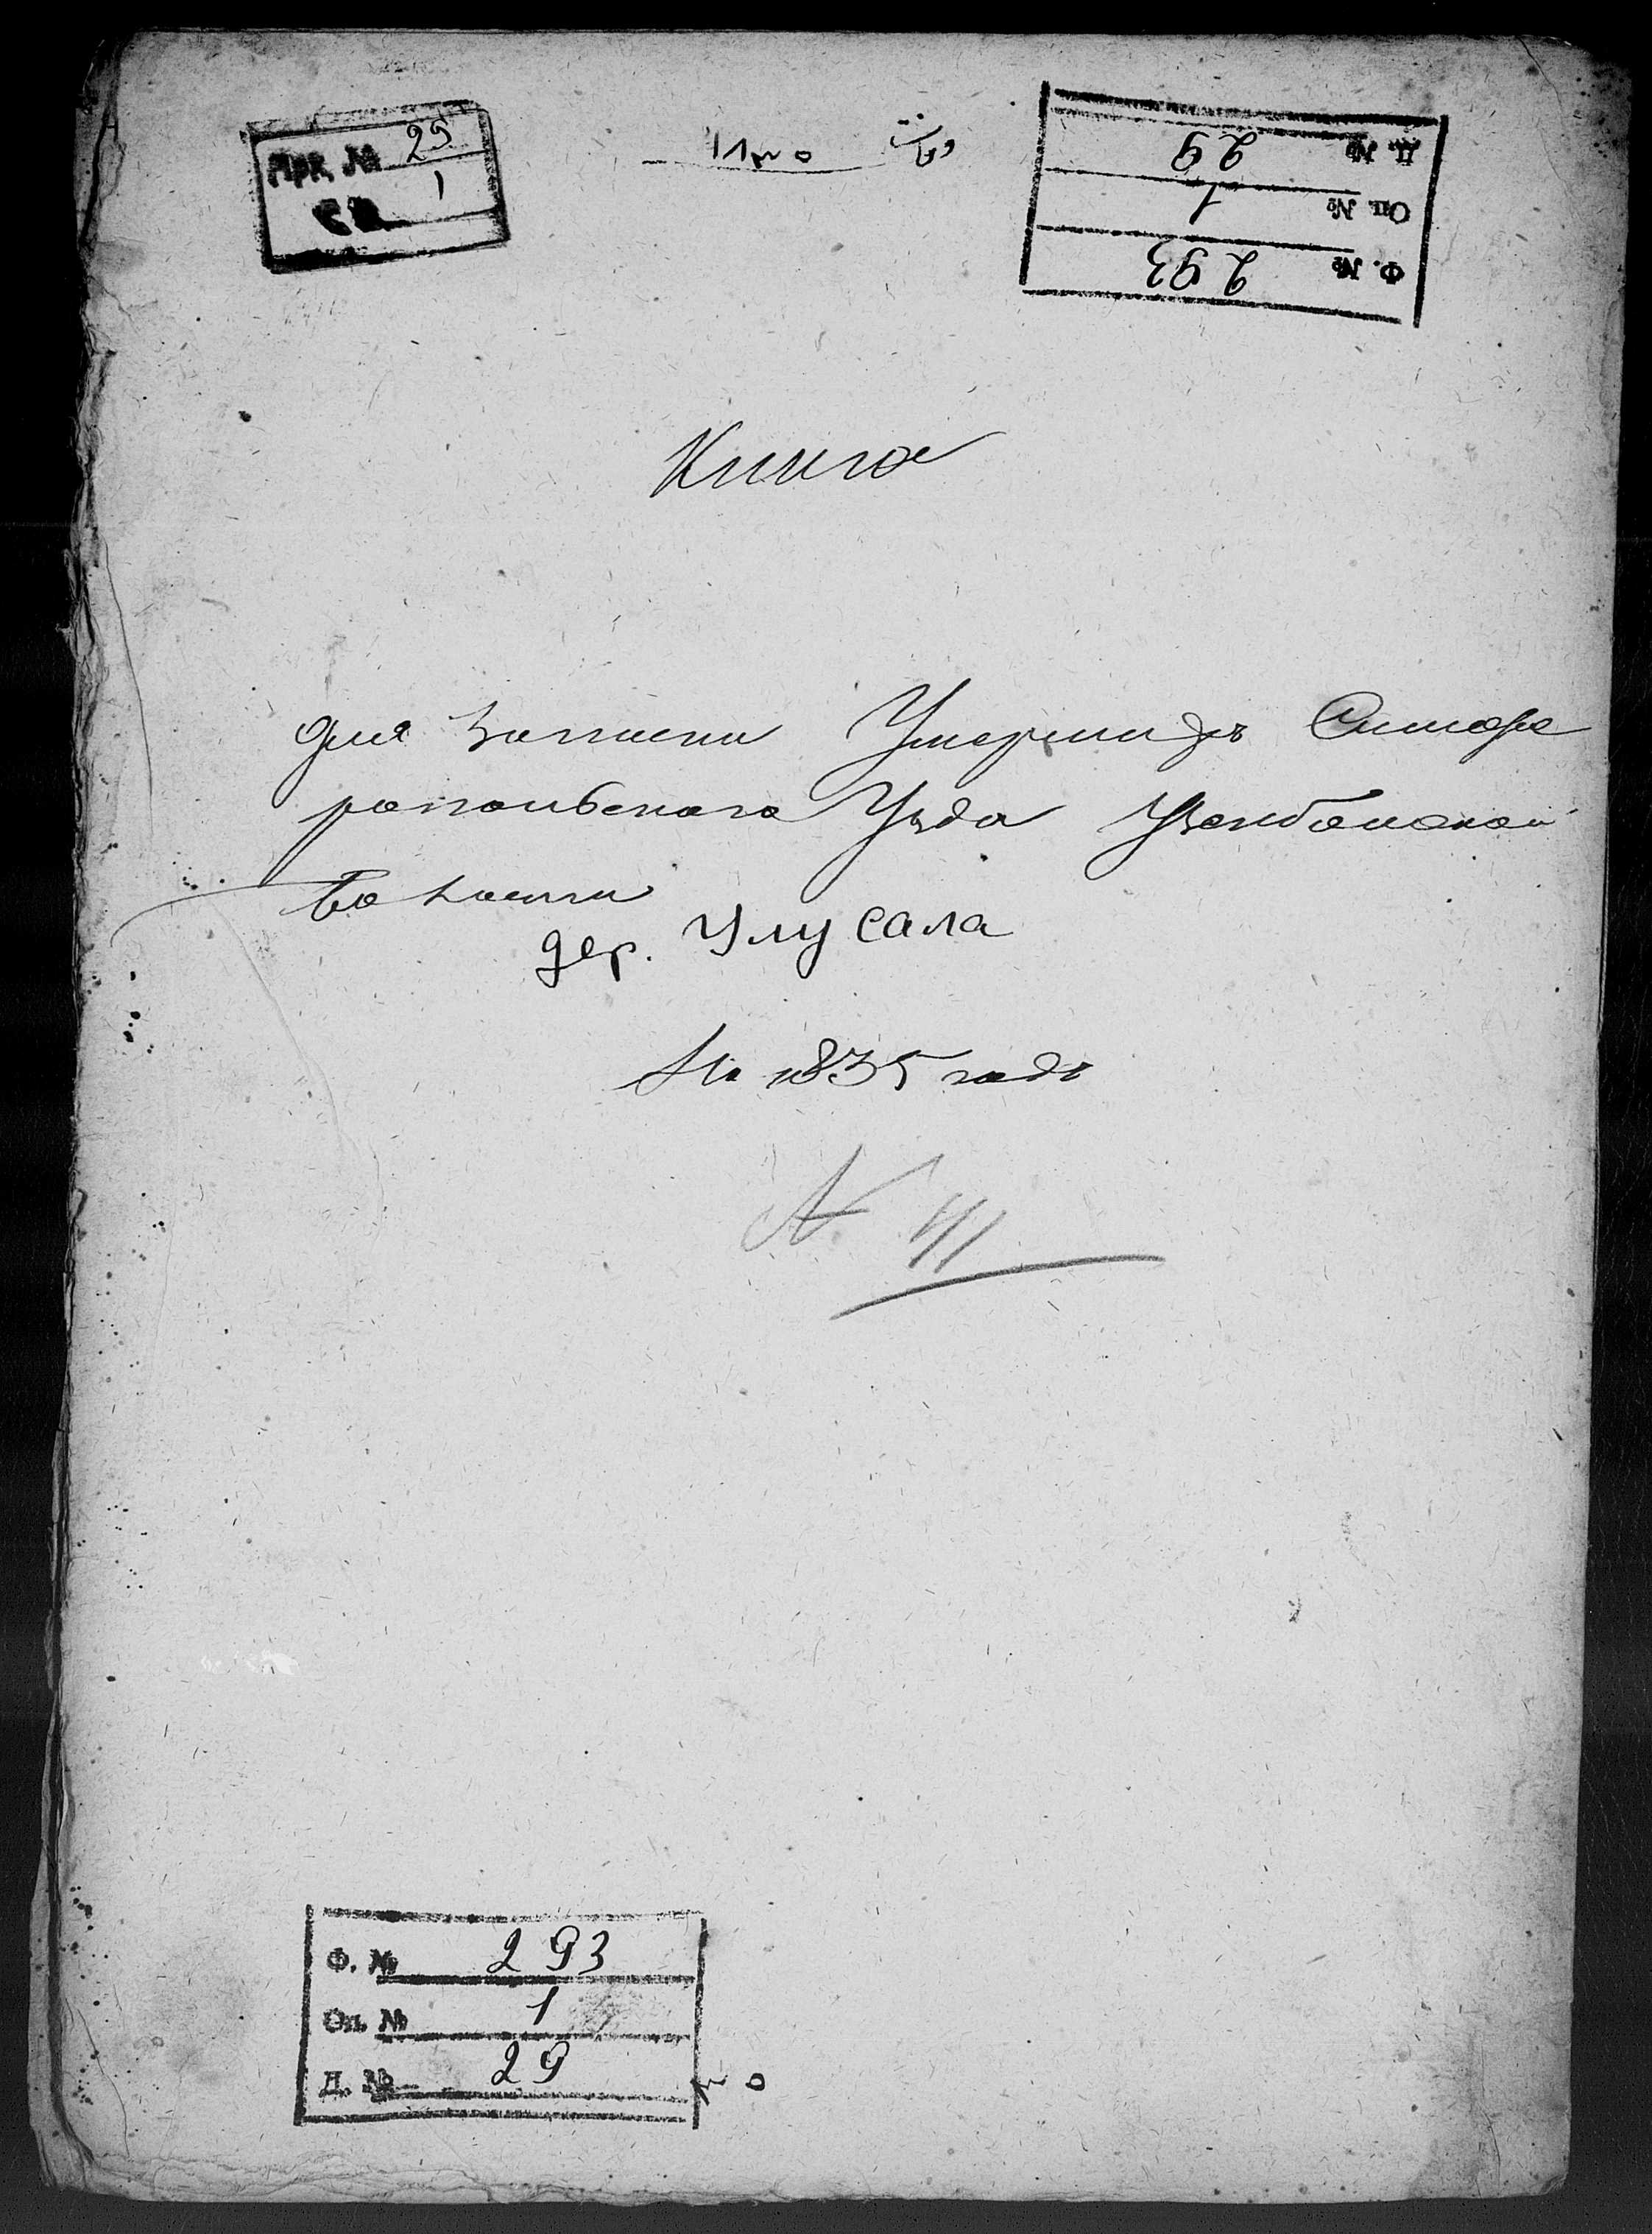 Арх. № 29
св. 1
وفات ١٨٣٥
Д. № 29
Оп. № 1
Ф. № 293
Книга
для записки Умершихъ Симфе
ропольскаго Уѣзда Узенбашской
Волости
дер. Улу Сала
На 1835 годъ
N 111
Ф. № 293
Оп. № 1
Д. № 29
٣٥